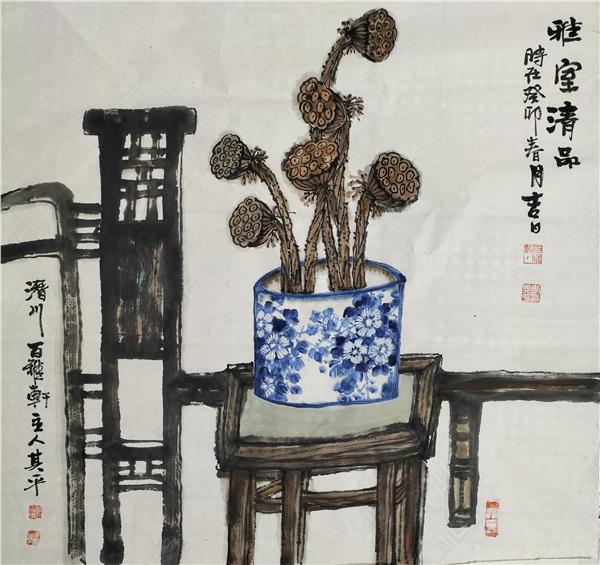 雅室清品
時在癸卯春月吉日
潛川百雅軒主人其平